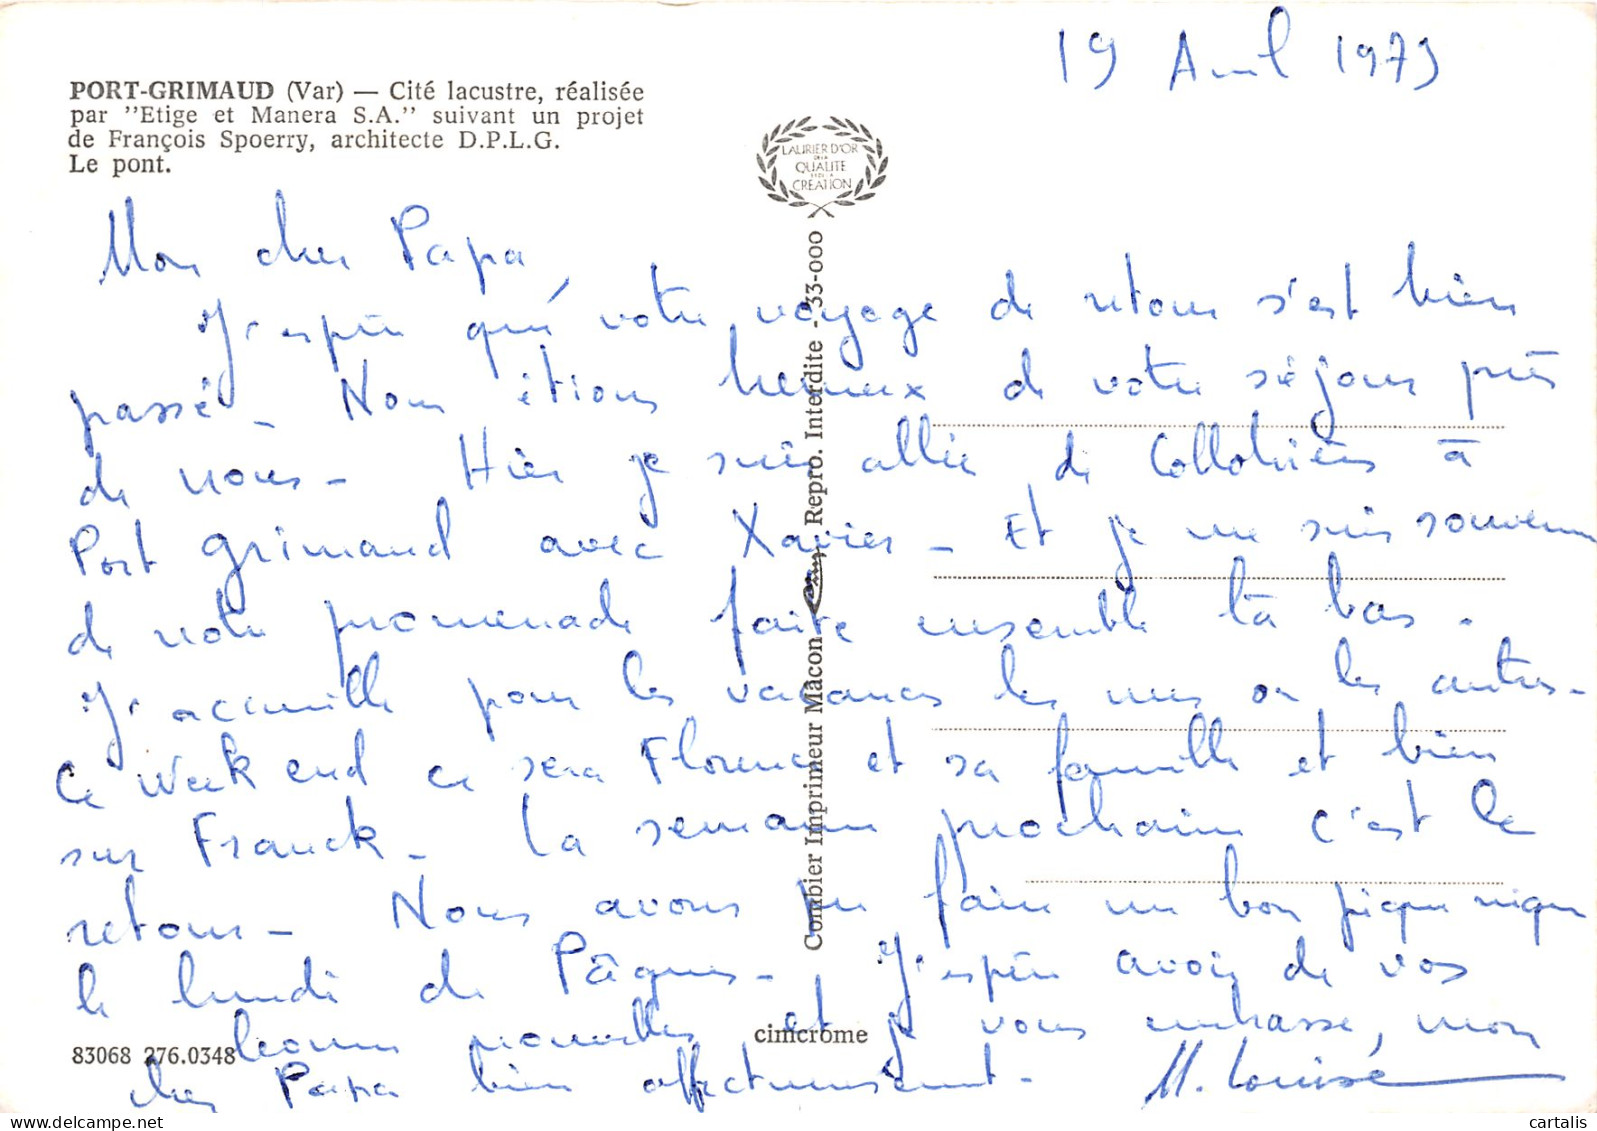 19 Avril 1979
PORT-GRIMAUD (Var) — Cité lacustre, réalisée
par "Etige et Manera S.A." suivant un projet
de François Spoerry, architecte D.P.L.G.
Le pont.
LAURIER D'OR
DE LA
QUALITE
CREATION
Mon cher Papa,
J'espère que votre voyage de retour s'est bien
passé - Nous étions heureux de votre séjour près
de nous - Hier je suis allée de Collobrières à
Port Grimaud avec Xavier - Et je me suis souvenue
de notre promenade faite ensemble là bas.
J'accueille pour les vacances les uns ou les autres -
Ce week end ce sera Florence et sa famille et bien
sur Franck - La semaine prochaine c'est le
retour - Nous avons pu faire un bon pique nique
le lundi de Pâques - J'espère avoir de vos
bonnes nouvelles et je vous embrasse, mon
cher Papa bien affectueusement - M. Louise
Combier Imprimeur Mâcon Repro. Interdite - 33-000
cimcrome
83068 276.0348
cartalis